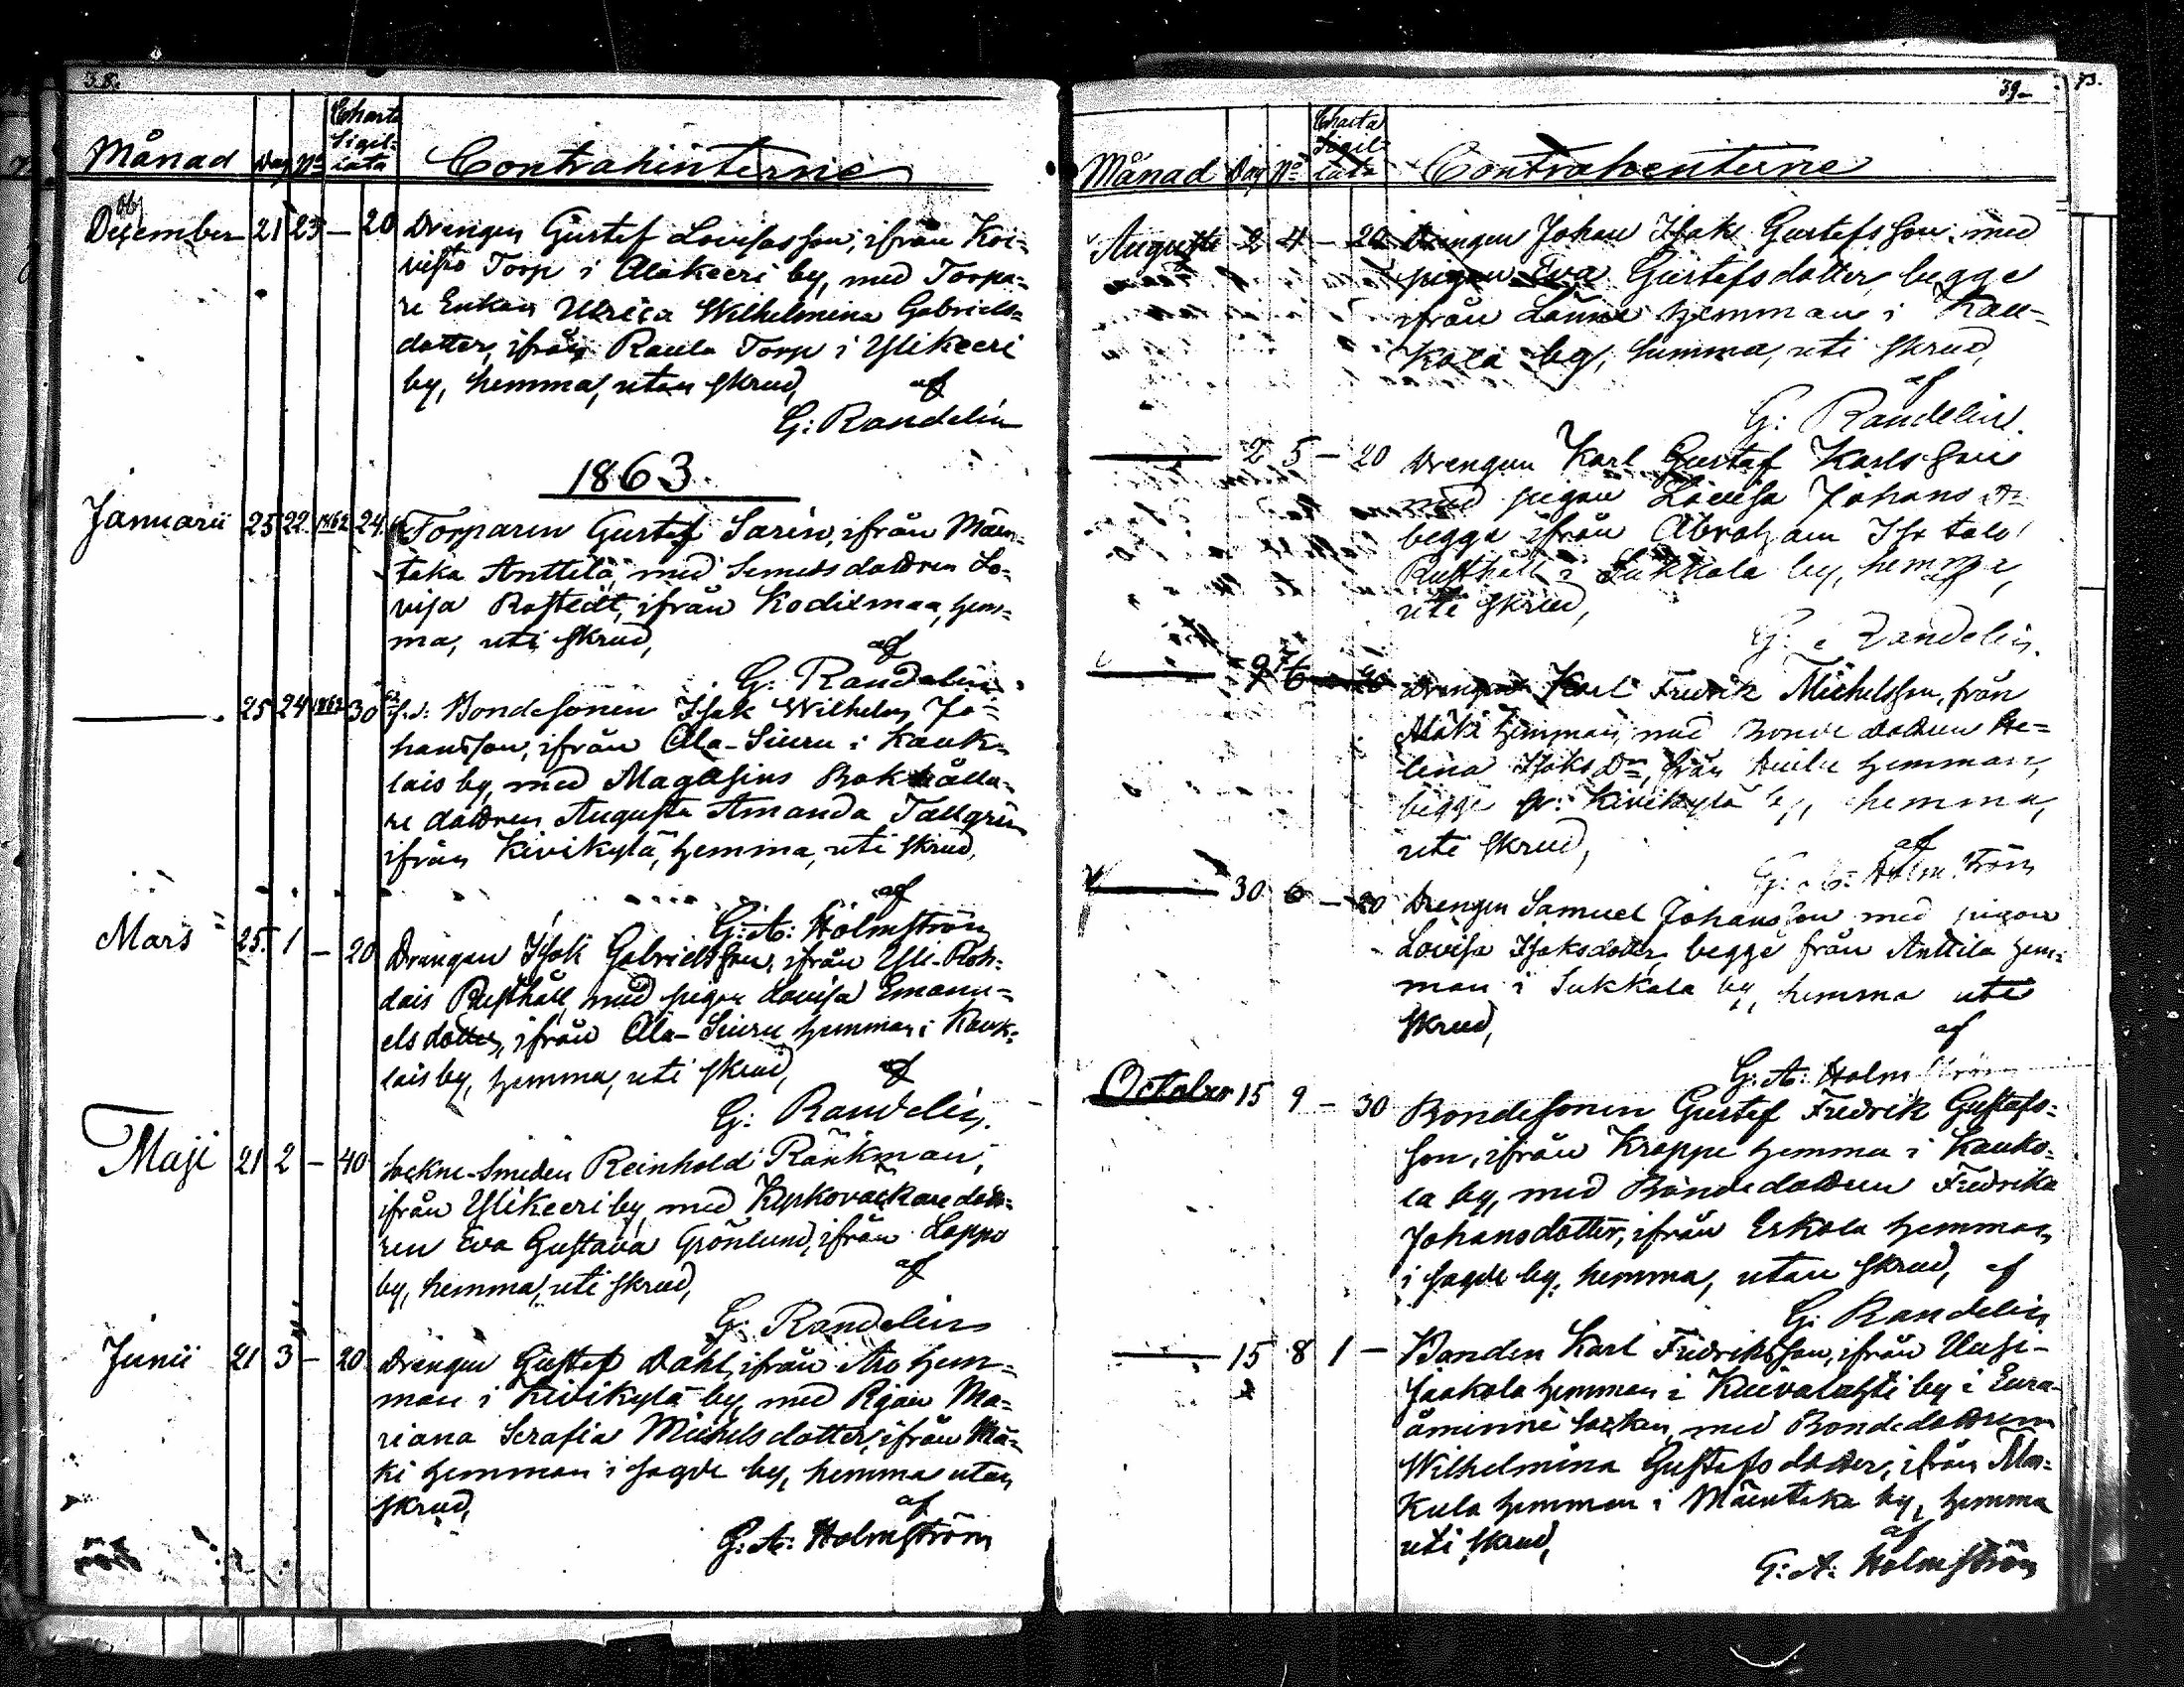 38.
Månad Dag No Charta Sigillata Contrahenterne
December 21 23 — 20 Drengen Gustef Lovisasson, ifrån Koi-
visto Torp i Alakeeri by, med Torpa-
re Enkan Ulrica Wilhelmina Gabriels-
dotter, ifrån Raula Torp i Ylikeeri
by, hemma, utan skrud,
af
G: Randelin
1863.
Januarii 25 22 1862 24 Torparen Gustef Sarin, ifrån Mäen-
taka Anttila, med Smedsdottren Lo-
visa Rostedt, ifrån Kodixmaa, hem-
ma, uti skrud,
af
G. Randelin
— 25 24 1862 30 Bondesonen Isak Wilhelm Jo-
hansson, ifrån Ala-Siuru i Kauk-
lais by, med Magasins Bokhålla-
re dottren Augusta Amanda Tallgren
ifrån Kivikylä, hemma, uti skrud,
af
G: A: Holmström
Mars 25. 1 — 20 Drengen Isak Gabrielsson, ifrån Yli-Roh-
dais Rusthåll, med pigan Lovisa Emanu-
elsdotter, ifrån Ala-Siuru hemman i Kauk-
lais by, hemma, uti skrud,
af
G: Randelin.
Maji 21 2 — 40 Sockne-Smeden Reinhold Ränkman,
ifrån Ylikeeri by, med Kyrkovaktaredott-
ren Eva Gustava Grönlund, ifrån Lappo
by, hemma, uti skrud,
af
G: Randelin
Junii 21 3 — 20 Drengen Gustef Dahl, ifrån Aro hem-
man i Kivikylä by, med Pigan Ma-
riana Serafia Michelsdotter, ifrån Mä-
ki hemman i Sagde by, hemma utan
skrud,
af
G: A: Holmström
39
Månad Dag No Charta Sigillata Contrahenterne
Augusti 2 4 — 20 Drengen Johan Isak Gustafsson, med
pigan Eva Gustefsdotter, begge
ifrån hemman i Kau-
kola by, hemma, uti skrud,
af
G: Randelin.
— 2 5 — 20 Drengen Karl Gustaf Karlsson
med pigan Lovisa Johans Dr
begge ifrån Abraham Iso talo
Rusthåll i Sukkala by, hemma,
uti skrud,
af
G: Randelin.
— 9 6 20 Drengen Karl Fredrik Michelsson, från
Mäki hemman, med Bonde dottren He-
lena Isaks Dr, från hemman,
begge Kivikylä by, hemma,
uti skrud,
af
G: A: Holmström
— 30 6 — 20 Drengen Samuel Johansson med pigan
Lovisa Isaksdotter, begge från Anttila hem-
man i Sukkala by, hemma uti
skrud,
af
G: A: Holmström
October 15 9 — 30 Bondesonen Gustef Fredrik Gustafs-
son, ifrån Krappe hemma i Kauko-
la by, med Bondedottren Fredrika
Johansdotter, ifrån Erkola hemman
i Sagde by, hemma, utan skrud,
af
G: Randelin
— 15 8 1 — Bonden Karl Fredriksson, ifrån Uusi-
Jaakola hemman i Kuivalahti by i Eura-
åminne Socken, med Bondedottren
Wilhelmina Gustafsdotter, ifrån Mar-
kula hemman i Mäentaka by, hemma
uti skrud,
af
G: A: Holmström